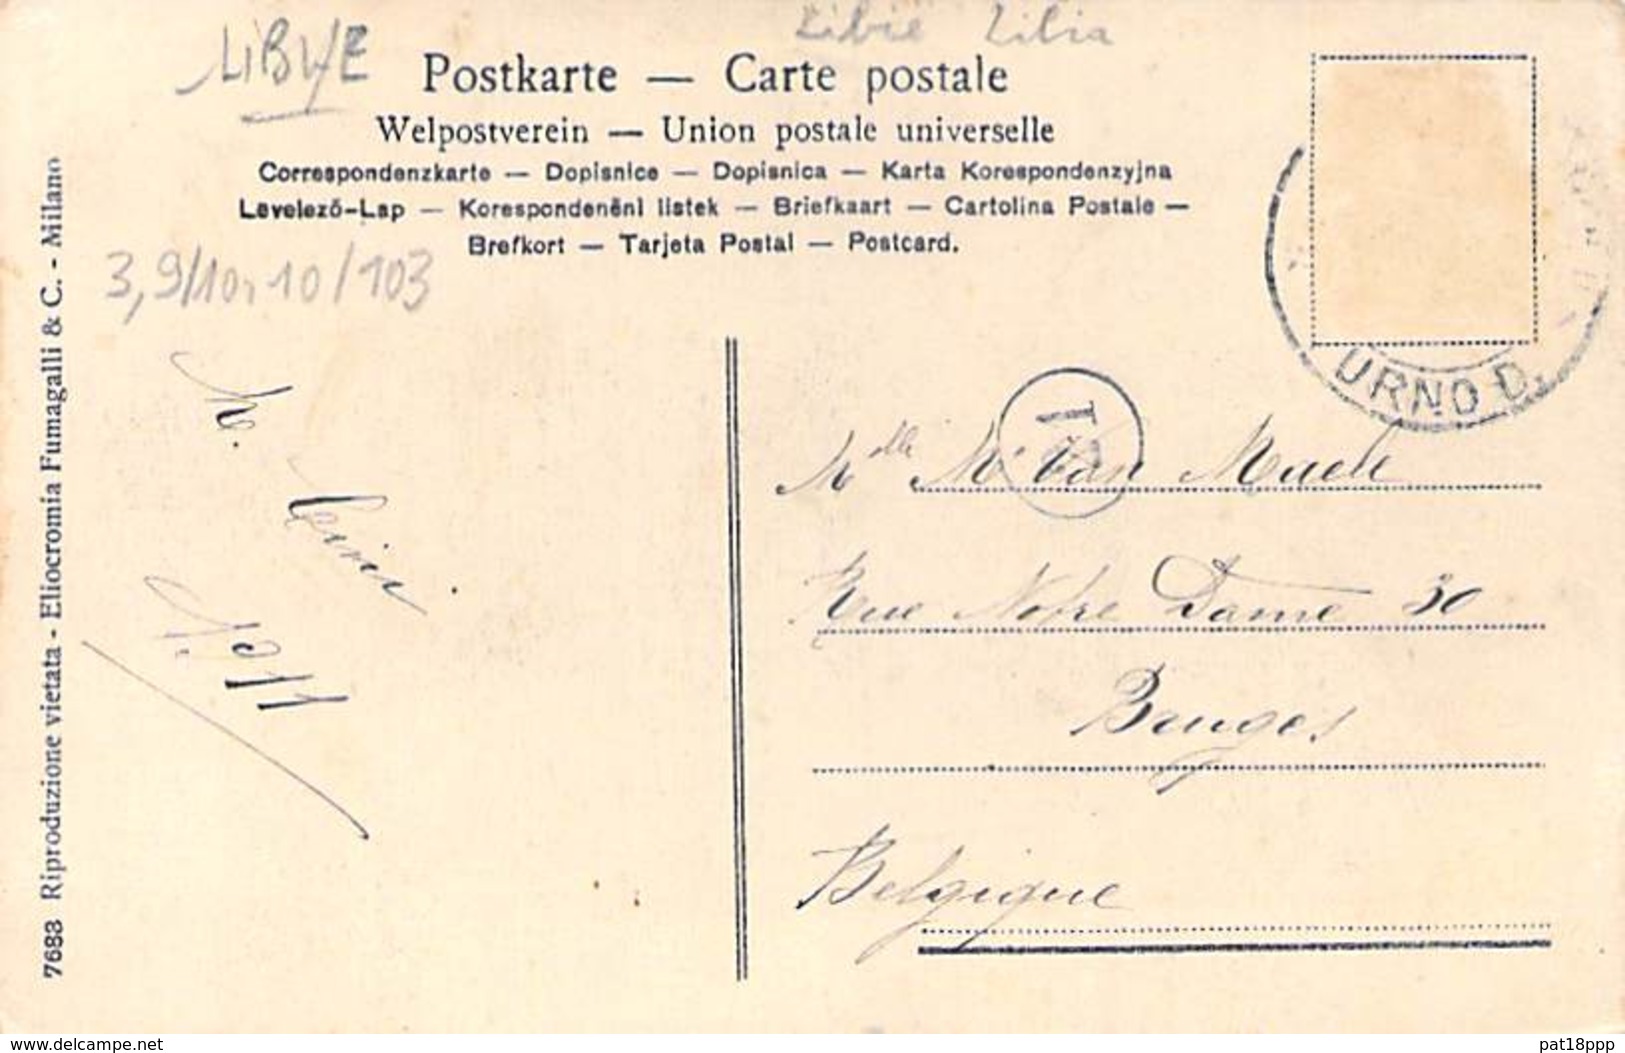 LIBYE
Libië Libia
Postkarte — Carte postale
Welpostverein — Union postale universelle
Correspondenzkarte — Dopisnice — Dopisnica — Karta Korespondenzyjna
Levelező-Lap — Korespondenční listek — Briefkaart — Cartolina Postale —
Brefkort — Tarjeta Postal — Postcard.
3,9/10, 10/103
7683 Riproduzione vietata - Eliocromia Fumagalli & C. - Milano
URNO D.
T
Mlle M. Van Maele
Rue Notre Dame 30
Bruges
Belgique
1911
www.delcampe.net
pat18ppp